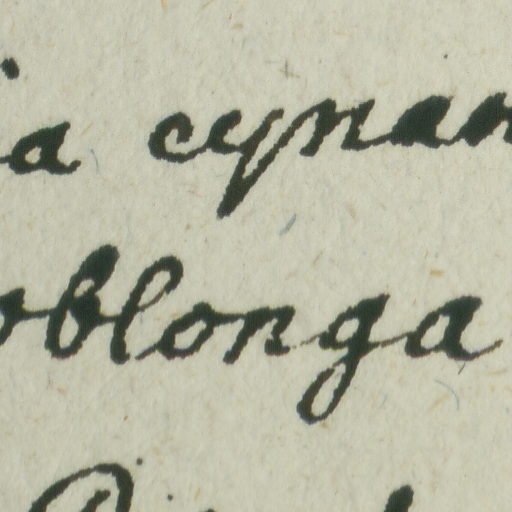 ia cynan
oblonga